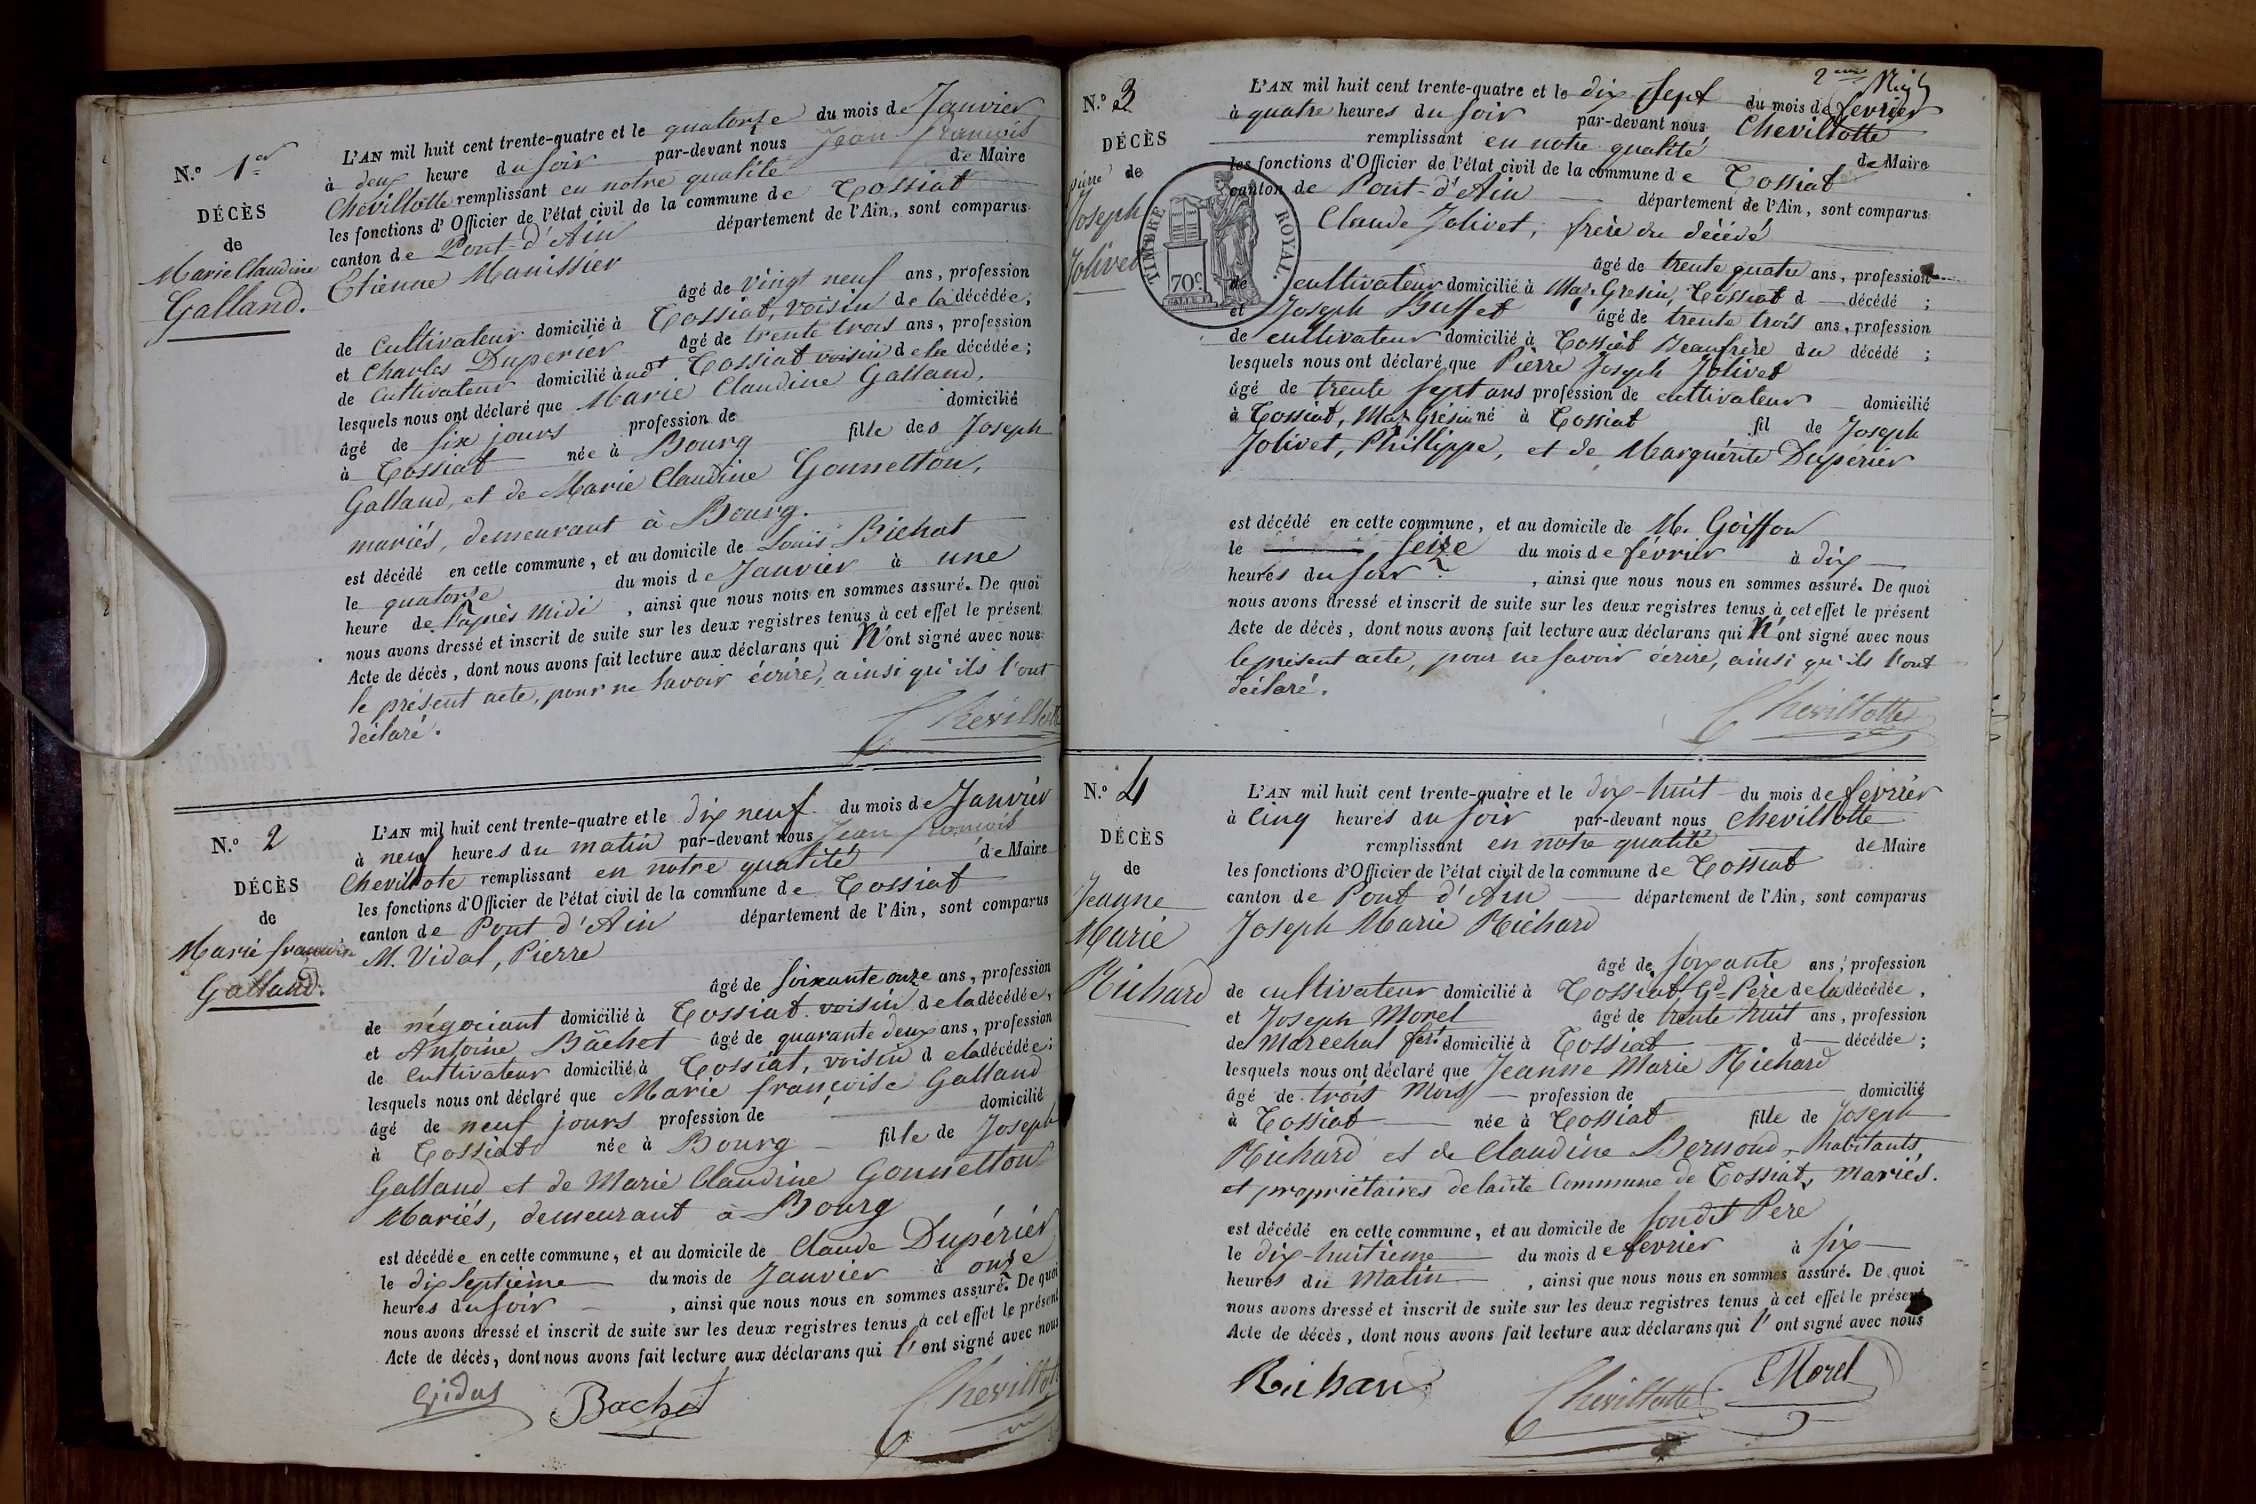 N.º 1er
DÉCÈS
de
Marie Claudine
Galland.
L'AN mil huit cent trente-quatre et le quatorze du mois de Janvier
à deux heure du soir par-devant nous Jean françois
Chevillotte remplissant en notre qualité de Maire
les fonctions d'Officier de l'état civil de la commune de Tossiat
canton de Pont-d'Ain département de l'Ain, sont comparus
Etienne Manissier
âgé de vingt neuf ans, profession
de cultivateur domicilié à Tossiat, voisin de la décédée,
et Charles Duperier âgé de trente trois ans, profession
de cultivateur domicilié à Tossiat voisin de la décédée;
lesquels nous ont déclaré que Marie Claudine Galland,
âgé de six jours profession de domicilié
à Tossiat née à Bourg fille de Joseph
Galland, et de Marie Claudine Gonnetton,
mariés, demeurant à Bourg.
est décédé en cette commune, et au domicile de Louis Bichat
le quatorze du mois de Janvier à une
heure de l'après midi, ainsi que nous nous en sommes assuré. De quoi
nous avons dressé et inscrit de suite sur les deux registres tenus à cet effet le présent
Acte de décès, dont nous avons fait lecture aux déclarans qui N'ont signé avec nous
le présent acte, pour ne savoir écrire, ainsi qu'ils l'ont
déclaré.
Chevillotte
N.º 2
DÉCÈS
de
Marie françoise
Galland.
L'AN mil huit cent trente-quatre et le dix neuf du mois de Janvier
à neuf heures du matin par-devant nous Jean françois
Chevillote remplissant en notre qualité de Maire
les fonctions d'Officier de l'état civil de la commune de Tossiat
canton de Pont d'Ain département de l'Ain, sont comparus
M. Vidal, Pierre
âgé de soixante onze ans, profession
de négociant domicilié à Tossiat voisin de la décédée,
et Antoine Bâchet âgé de quarante deux ans, profession
de cultivateur domicilié à Tossiat, voisin de la décédée;
lesquels nous ont déclaré que Marie françoise Galland
âgé de neuf jours profession de domicilié
à Tossiat née à Bourg fille de Joseph
Galland et de Marie Claudine Gonnetton
Mariés, demeurant à Bourg
est décédée en cette commune, et au domicile de Claude Dupérier
le dix septième du mois de Janvier à onze
heures du soir, ainsi que nous nous en sommes assuré. De quoi
nous avons dressé et inscrit de suite sur les deux registres tenus à cet effet le présent
Acte de décès, dont nous avons fait lecture aux déclarans qui l'ont signé avec nous
Vidal Bachet Chevillotte
2eme
N.º 3
DÉCÈS
de
Pierre
Joseph
Jolivet
TIMBRE ROYAL.
70 c
L'AN mil huit cent trente-quatre et le dix sept du mois de fevrier
à quatre heures du soir par-devant nous Chevillotte
remplissant en notre qualité de Maire
les fonctions d'Officier de l'état civil de la commune de Tossiat
canton de Pont-d'Ain département de l'Ain, sont comparus
Claude Jolivet, frère du décédé
âgé de trente quatre ans, profession
de cultivateur domicilié à Maz. Gresin, Tossiat d décédé;
et Joseph Buffet âgé de trente trois ans, profession
de cultivateur domicilié à Tossiat Beaufrère du décédé;
lesquels nous ont déclaré que Pierre Joseph Jolivet
âgé de trente sept ans profession de cultivateur domicilié
à Tossiat, Maz Grésin né à Tossiat fil de Joseph
Jolivet, Phillippe, et de Marguérite Dupérier
est décédé en cette commune, et au domicile de M. Goiffon
le seize du mois de février à dix
heures du soir, ainsi que nous nous en sommes assuré. De quoi
nous avons dressé et inscrit de suite sur les deux registres tenus à cet effet le présent
Acte de décès, dont nous avons fait lecture aux déclarans qui N'ont signé avec nous
le présent acte, pour ne savoir écrire, ainsi qu'ils l'ont
déclaré.
Chevillotte
N.º 4
DÉCÈS
de
Jeanne
Marie
Richard
L'AN mil huit cent trente-quatre et le dix-huit du mois de fevrier
à Cinq heures du soir par-devant nous Chevillotte
remplissant en notre qualité de Maire
les fonctions d'Officier de l'état civil de la commune de Tossiat
canton de Pont d'Ain département de l'Ain, sont comparus
Joseph Marie Richard
âgé de soixante ans, profession
de cultivateur domicilié à Tossiat, Gd Père de la décédée,
et Joseph Morel âgé de trente huit ans, profession
de Marechal fert domicilié à Tossiat d décédée;
lesquels nous ont déclaré que Jeanne Marie Richard
âgé de trois Mois profession de domicilié
à Tossiat née à Tossiat fille de Joseph
Richard et de Claudine Bernoud, habitants
et propriétaires de ladite Commune de Tossiat, Mariés.
est décédé en cette commune, et au domicile de sondit Père
le dix-huitieme du mois de fevrier à six
heures du Matin, ainsi que nous nous en sommes assuré. De quoi
nous avons dressé et inscrit de suite sur les deux registres tenus à cet effet le présent
Acte de décès, dont nous avons fait lecture aux déclarans qui l'ont signé avec nous
Richard Chevillotte Morel